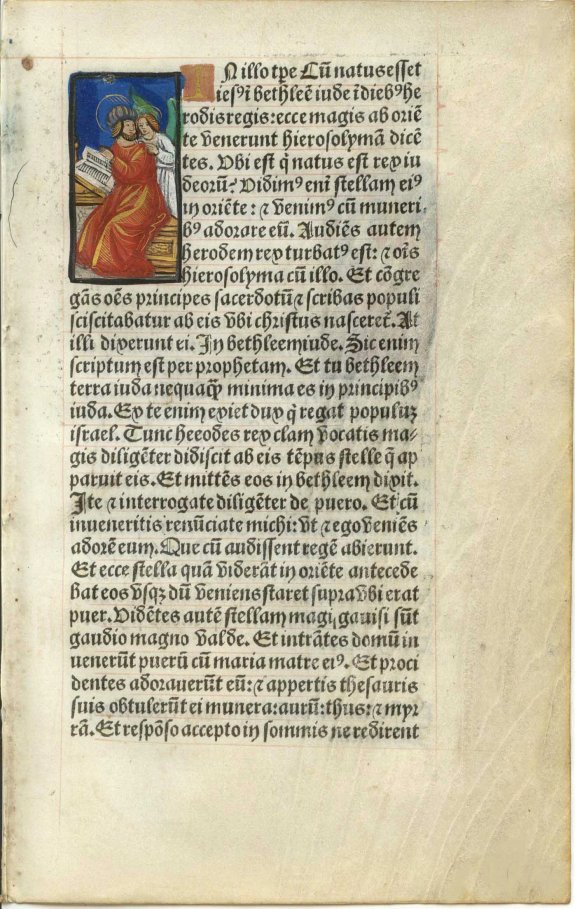 IN illo tp̄e Cū natus esset
iesꝰ ī bethleē iude ī diebꝰ he
rodis regis: ecce magis ab oriē
te venerunt hierosolymā dicē
tes. Vbi est q̄ natus est rex iu
deorū? Vidimꝰ eni᷒ stellam eiꝰ
in oriēte: ⁊ venimꝰ cū muneri
bꝰ adorare eū. Audiēs autem
herodem rex turbatꝰ est: ⁊ oīs
hierosolyma cū illo. Et cōgre
gās oēs principes sacerdotū ⁊ scribas populi
sciscitabatur ab eis vbi christus nasceret᷑. At
illi dixerunt ei. In bethleem iude. Sic enim
scriptum est per prophetam. Et tu bethleem
terra iuda nequaq̄ȝ minima es in principibꝰ
iuda. Ex te enim exiet dux q̄ regat populuȝ
israel. Tunc heeodes rex clam vocatis ma⸗
gis diligēter didiscit ab eis tēpus stelle q̄ ap
paruit eis. Et mittēs eos in bethleem dixit.
Ite ⁊ interrogate diligēter de puero. Et cū
inueneritis renūciate michi: vt ⁊ ego veniēs
adorē eum. Que cū audissent regē abierunt.
Et ecce stella quā viderāt in oriēte antecede
bat eos vsqȝ dū veniens staret supra vbi erat
puer. Vidētes autē stellam magi gauisi sūt
gaudio magno valde. Et intrātes domū in
uenerūt puerū cū maria matre eiꝰ. Et proci
dentes adorauerūt eū: ⁊ appertis thesauris
suis obtulerūt ei munera: aurū: thus: ⁊ myr
rā. Et respōso accepto in sommis ne redirent